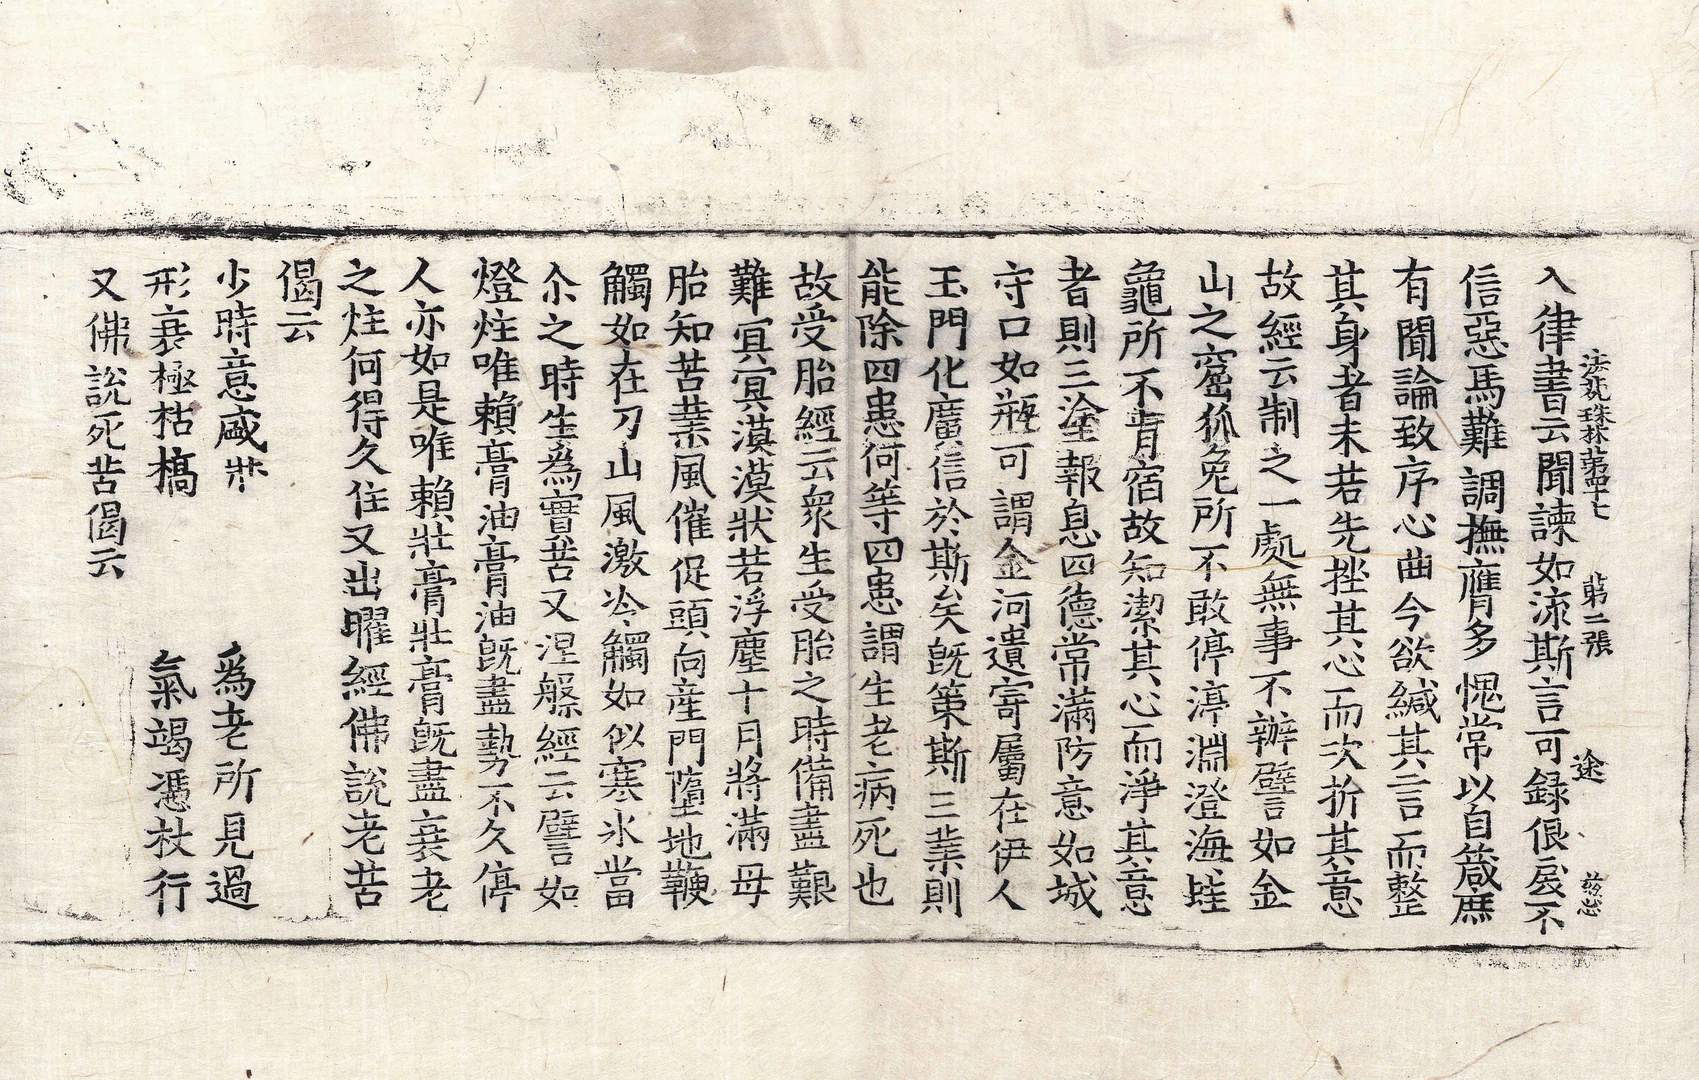 法苑珠林第四十七　第二張　途　茲忠
入律書云聞諫如流斯言可録佷戾不
信惡馬難調撫膺多愧常以自箴庶
有聞論致序心曲今欲緘其言而整
其身者未若先挫其心而次折其意
故經云制之一處無事不辦譬如金
山之窟狐兔所不敢停渟淵澄海蛙
龜所不肯宿故知潔其心而淨其意
者則三塗報息四德常滿防意如城
守口如瓶可謂金河遺寄屬在伊人
玉門化廣信於斯矣旣策斯三業則
能除四患何等四患謂生老病死也
故受胎經云衆生受胎之時備盡艱
難冥冥漠漠狀若浮塵十月將滿母
胎知苦業風催促頭向産門墮地鞕
觸如在刀山風激冷觸如似寒氷當
尒之時生爲實苦又涅槃經云譬如
燈炷唯頼膏油膏油旣盡勢不久停
人亦如是唯頼壯膏壯膏旣盡衰老
之炷何得久住又出曜經佛說老苦
偈云
少時意盛壯　爲老所見逼
形衰極枯槁　氣竭憑杖行
又佛說死苦偈云